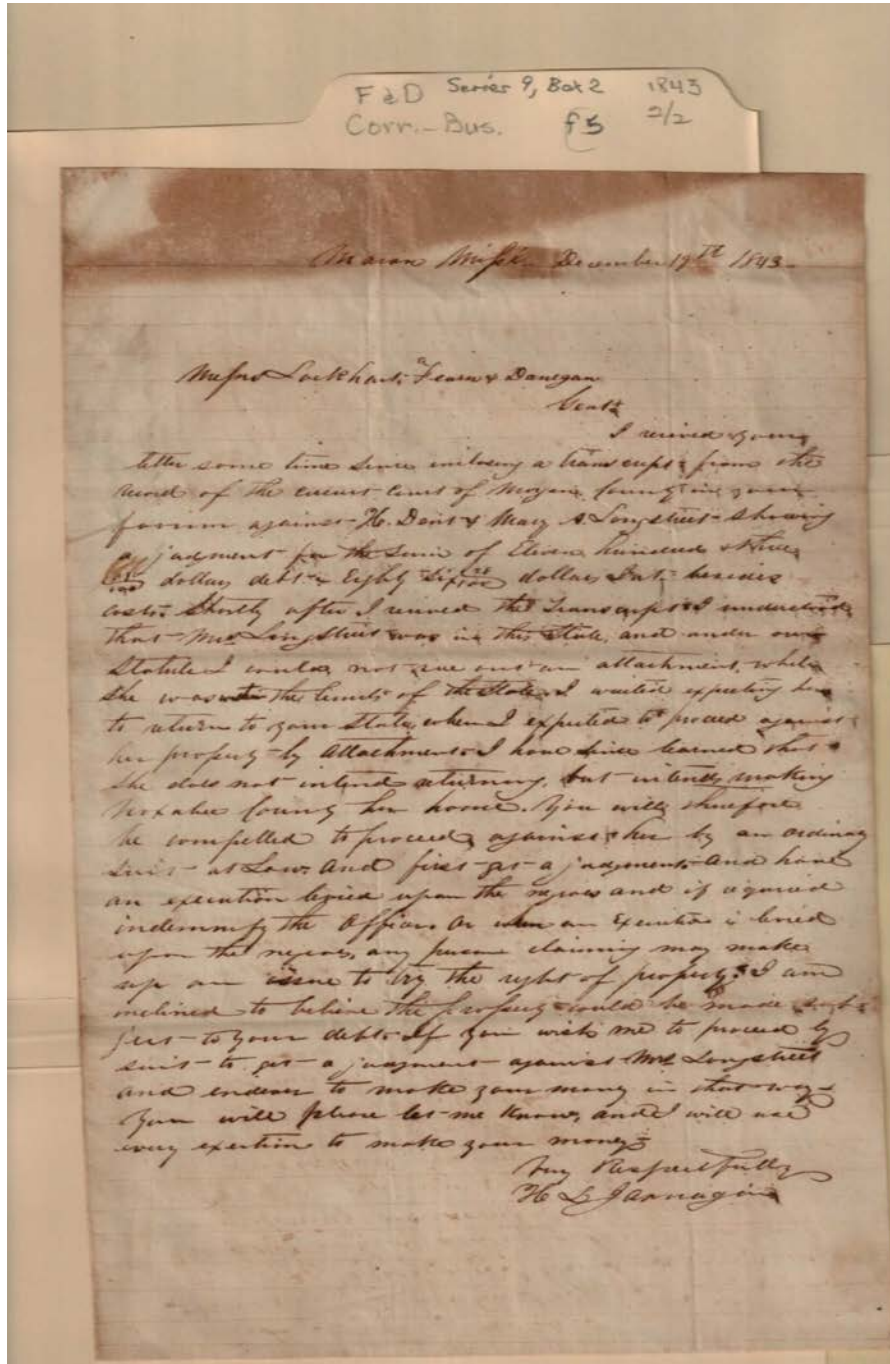 F & D Series 9, Box 2 1843
Corr.-Bus. f5 2/2
Macon Missi. December 19th 1843
Messrs Lockhart, Fearn & Donegan
Gents
I recived your
letter some time since inclosing a transcript from the
record of the circuit court of Morgan County in your
favour against H. Dent & Mary A. Longstreet showing
a judgment for the sum of Eleven hundred & three
dollars debt & Eighty six dollars Int. besides
costs. Shortly after I recived the Transcript I understood
that Mrs Longstreet was in this State, and under our
Statute I could not sue out an attachment, while
she was the limits of the State. I waited expecting her
to return to your State, when I expected to proceed against
her property by attachment. I have since learned that
she does not intend returning, but intends making
Noxubee County her home. You will therefore
be compelled to proceed against her by an ordinary
suit at Law. And first get a judgment and have
an execution levied upon the negroes and if required
indemnify the Officer. Or when an Execution is levied
upon the negroes, any person claiming may make
up an issue to try the right of property. I am
inclined to believe the property could be made sub-
ject to your debt. If you wish me to proceed by
suit to get a judgment against Mrs Longstreet
and endeavor to make your money in that way
you will please let me know, and I will use
every exertion to make your money
Very Respectfully
H L Jarnagin